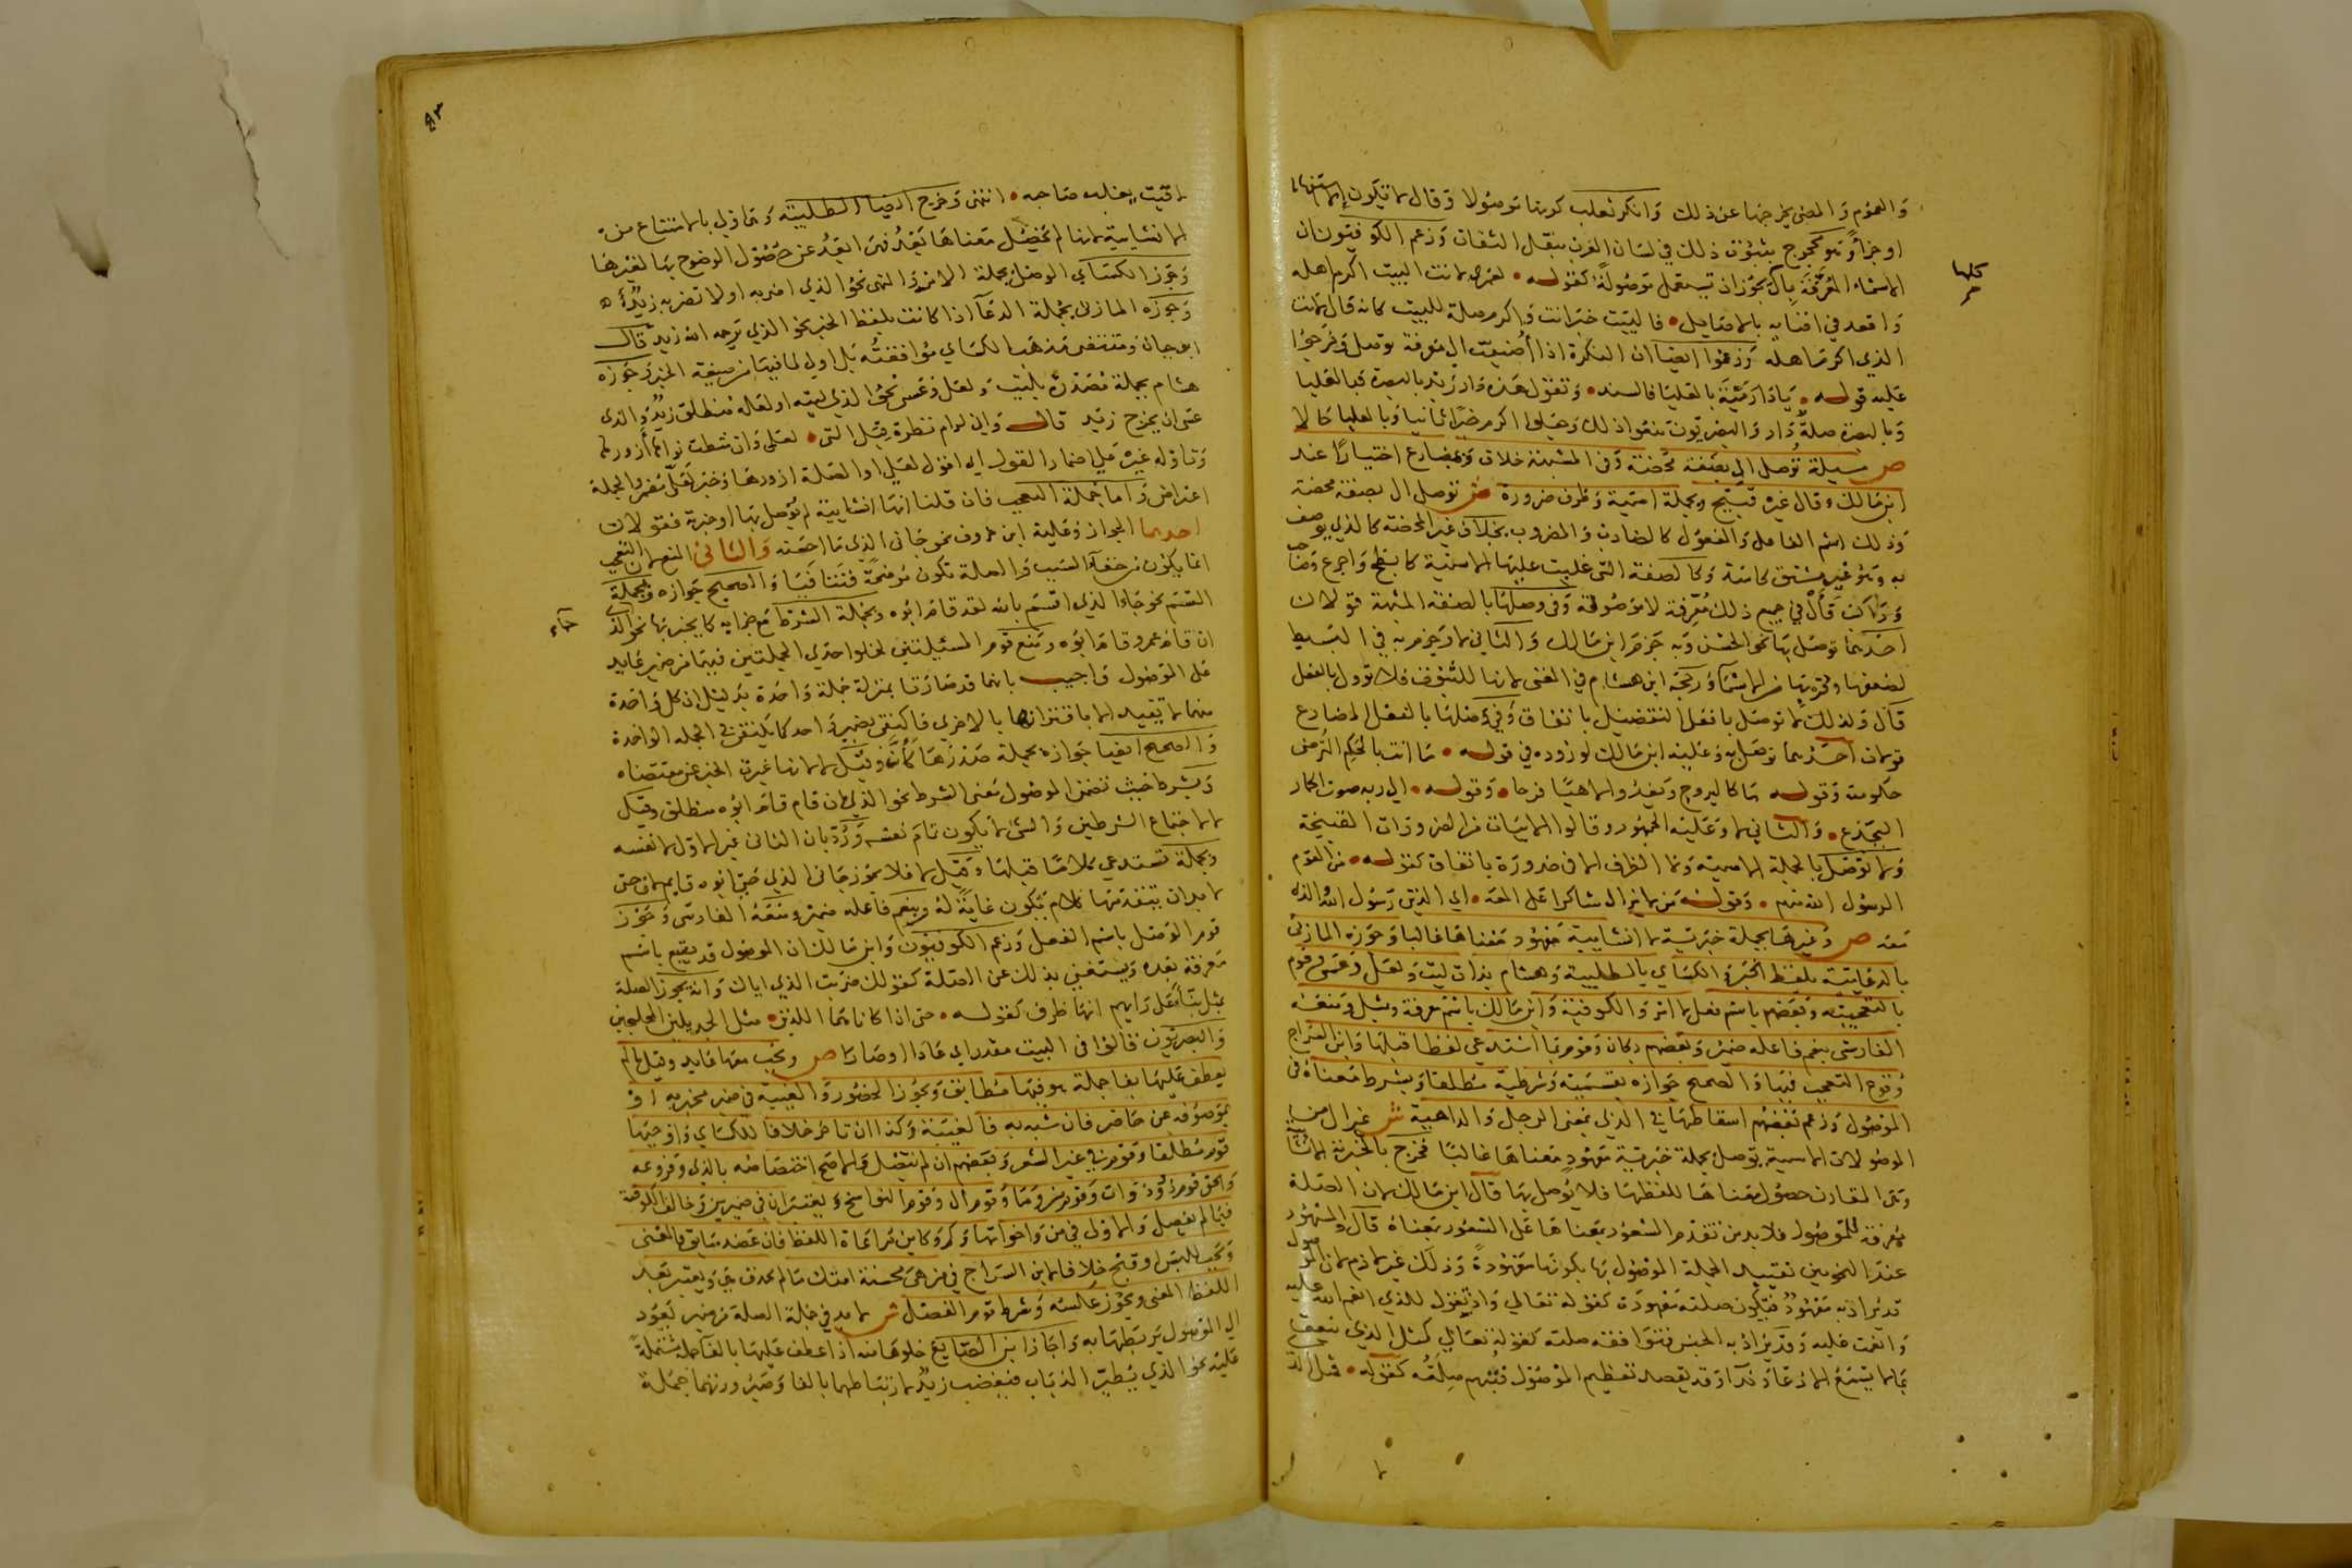 والعموم والمضي يخرجها عن ذلك وانكر ثعلب كونها موصولا وقال لا تكون الا استفهاما
او جزاء وهو محجوج بثبوت ذلك في لسان العرب بنقل الثقات وزعم الكوفيون ان
الاسماء المعرفة بال يجوز ان تستعمل موصولة كقوله لعمري لانت البيت اكرم اهله
كلها
واقعد في افيائه بالاصايل فالبيت خبر انت واكرم صلة للبيت كانه قال لانت
الذي اكرم اهله وزعموا ايضا ان النكرة اذا اضيفت الى معرفة توصل وخرجوا
عليه قوله يا دار مية بالعلياء فالسند وتقول هذه دار زيد بالبصرة فبالعليا
وبالبصرة صلة دار والبصريون منعوا ذلك وجعلوا اكرم خبرا ثانيا وبالعليا حالا
ص مسيلة توصل ال بصفة محضة وفي المشبهة خلاف وبمضارع اختيارا عند
ابن مالك وقال غيره قبيح وبجملة اسمية وظرف ضرورة ش توصل ال بصفة محضة
وذلك اسم الفاعل والمفعول كالضارب والمضروب بخلاف غير المحضة كالذي يوصف
به وهو غير مشتق كاسد وكالصفة التي غلبت عليها الاسمية كابطح واجرع وصاحب
وراكب فال في جميع ذلك معرفة لا موصولة وفي وصلها بالصفة المشبهة قولان
احدهما توصل بها نحو الحسن وبه جزم ابن مالك والثاني لا وجزم به في البسيط
لضعفها وقربها من الاسماء ورجحه ابن هشام في المغني لانها للثبوت فلا تؤول بالفعل
قال ولذلك لا توصل بافعل التفضيل باتفاق وفي وصلها بالفعل المضارع
قولان احدهما توصل به وعليه ابن مالك لوروده في قوله ما انت بالحكم الترضى
حكومته وقوله ما كاليروح ويغدو لاهيا فرحا وقوله الى ربه صوت الحمار
اليجدع والثاني لا وعليه الجمهور وقالوا الابيات من الضرورات القبيحة
ولا توصل بالجملة الاسمية ولا الظرف الا في ضرورة باتفاق كقوله من القوم
الرسول الله منهم وقوله من لا يزال شاكرا على المعه اي الذين رسول الله والذي
معه ص وغيرها بجملة خبرية لا انشايية معهود معناها غالبا وجوزه المازني
بالدعايية بلفظ الخبر والكساي بالطلبية وهشام بذات ليت ولعل وعسى وقوم
بالتعجبية وبعضهم باسم فعل لامر والكوفية وابن مالك باسم معرفة ومثل ومنعه
الفارسي بنعم فاعله ضمير وبعضهم بكان وقوم بما استدعى لفظا قبلها وابن السراج
وقوع التعجب فيها والصحيح جوازه بقسمية وشرطية مطلقا وبشرط معناه في
الموصول وزعم بعضهم اسقاطها في الذي بمعنى الرجل والداهية ش غير ال من
الموصولات الاسمية يوصل بجملة خبرية معهود معناها غالبا فخرج بالخبرية الانشايية
وهي المقارن حصول معناها للفظها فلا يوصل بها قال ابن مالك لان الصلة
معرفة للموصول فلا بد من تقدم الشعور بمعناها على الشعور بمعناه قال والمشهور
عند النحويين تقييد الجملة الموصول بها بكونها معهودة وذلك غير لازم لان الموصول
قد يراد به معهود فتكون صلته معهودة كقوله تعالى واذ تقول للذي انعم الله عليه
وانعمت عليه وقد يراد به الجنس فتوافقه صلته كقوله تعالى كمثل الذي ينعق
بما لا يسمع الا دعاء ونداء وقد يقصد تعظيم الموصول فتبهم صلته كقوله فمثل الذي
٨٣
لاقيت يغلب صاحبه انتهى وخرج ايضا الطلبية وهي اولى بالامتناع من
الانشايية لانها لم يحصل معناها بعد فهي ابعد عن حصول الوضوح بها لغيرها
وجوز الكساي الوصل بجملة الامر والنهي نحو الذي اضربه او لا تضربه زيد
وجوزه المازني بجملة الدعاء اذا كانت بلفظ الخبر نحو الذي يرحمه الله زيد قال
ابو حيان ومقتضى مذهب الكساي موافقته بل اولى لما فيها من صيغة الخبر وجوزه
هشام بجملة مصدرة بليت ولعل وعسى نحو الذي ليته او لعله منطلق زيد والذي
عسى ان يخرج زيد قال واني لرام نظرة قبل التي لعلي وان شطت نواها ازورها
وتاوله غيره على اضمار القول اي اقول لعلي او الصلة ازورها وخبر لعل مضمر والجملة
اعتراض واما جملة التعجب فان قلنا انها انشايية لم توصل بها او خبرية فقولان
احدهما الجواز وعليه ابن خروف نحو جاني الذي ما احسنه والثاني المنع لان التعجب
انما يكون من خفاء السبب والصلة تكون موضحة فتنافيا والصحيح جوازه وبجملة
القسم نحو جاء الذي اقسم بالله لقد قام ابوه وبجملة الشرط مع جزايه كما يخبر بها نحو الذي
جاء
ان قام عمرو قام ابوه ومنع قوم المسيلتين لخلو احدى الجملتين فيهما من ضمير عايد
على الموصول واجيب بانهما قد صارتا بمنزلة جملة واحدة بدليل ان كل واحدة
منهما لا تفيد الا باقترانها بالاخرى فاكتفي بضمير واحد كما يكتفى في الجملة الواحدة
والصحيح ايضا جوازه بجملة صدرها كان وقيل لا لانها غيرت الخبر عن مقتضاه
وبشرط حيث تضمن الموصول معنى الشرط نحو الذي ان قام قام ابوه منطلق وقيل
لا لاجتماع الشرطين والشي لا يكون تمام نفسه ورد بان الثاني غير الاول لا نفسه
وبجملة تستدعي كلاما قبلها وقيل لا فلا يجوز جاني الذي حتى ابوه قايم لان حتى
لا بد ان يتقدمها كلام يكون غاية له وبنعم فاعله ضمير ومنعه الفارسي وجوز
قوم الوصل باسم الفعل وزعم الكوفيون وابن مالك ان الموصول قد يتبع باسم
معرفة بعده ويستغني بذلك عن الصلة كقولك ضربت الذي اياك وانه يجوز الصلة
بمثل بناء على رايهم انها ظرف كقوله حتى اذا كانا هما اللذين مثل الجديلين المحملجين
والبصريون قالوا في البيت مقدر اي عادا او صارا ص ويجب معها عايد وقيل ما لم
يعطف عليها بفا جملة هو فيها مطابق ويجوز الحضور والغيبة في ضمير مخبر به او
بموصوفه عن حاضر فان شبه به فالغيبة وكذا ان تاخر خلافا للكساي واوجبها
قوم مطلقا وقوم في غير الشعر وبعضهم ان لم يتصل والاصح اختصاصه بالذي وفروعه
والحق قوم ذو وذات وقوم من وما وقوم ال وقوم النواسخ ويعتبران في ضميرين وخالف الكوفية
فيما لم يفصل والاولى في من وما واخواتها وكم وكاين مراعاة اللفظ فان عضد سابق فالمعنى
ويجب للبس او قبح خلافا لابن السراج في من هي محسنة امتك ما لم يحذف هي ويعتبر بعد
اللفظ المعنى ويجوز عكسه وشرط قوم الفصل ش لا بد في جملة الصلة من ضمير يعود
الى الموصول يربطها به واجاز ابن الصايغ خلوها منه اذا عطف عليها بالفاء جملة مشتملة
عليه نحو الذي يطير الذباب فيغضب زيد لارتباطهما بالفا وصيرورتهما جملة